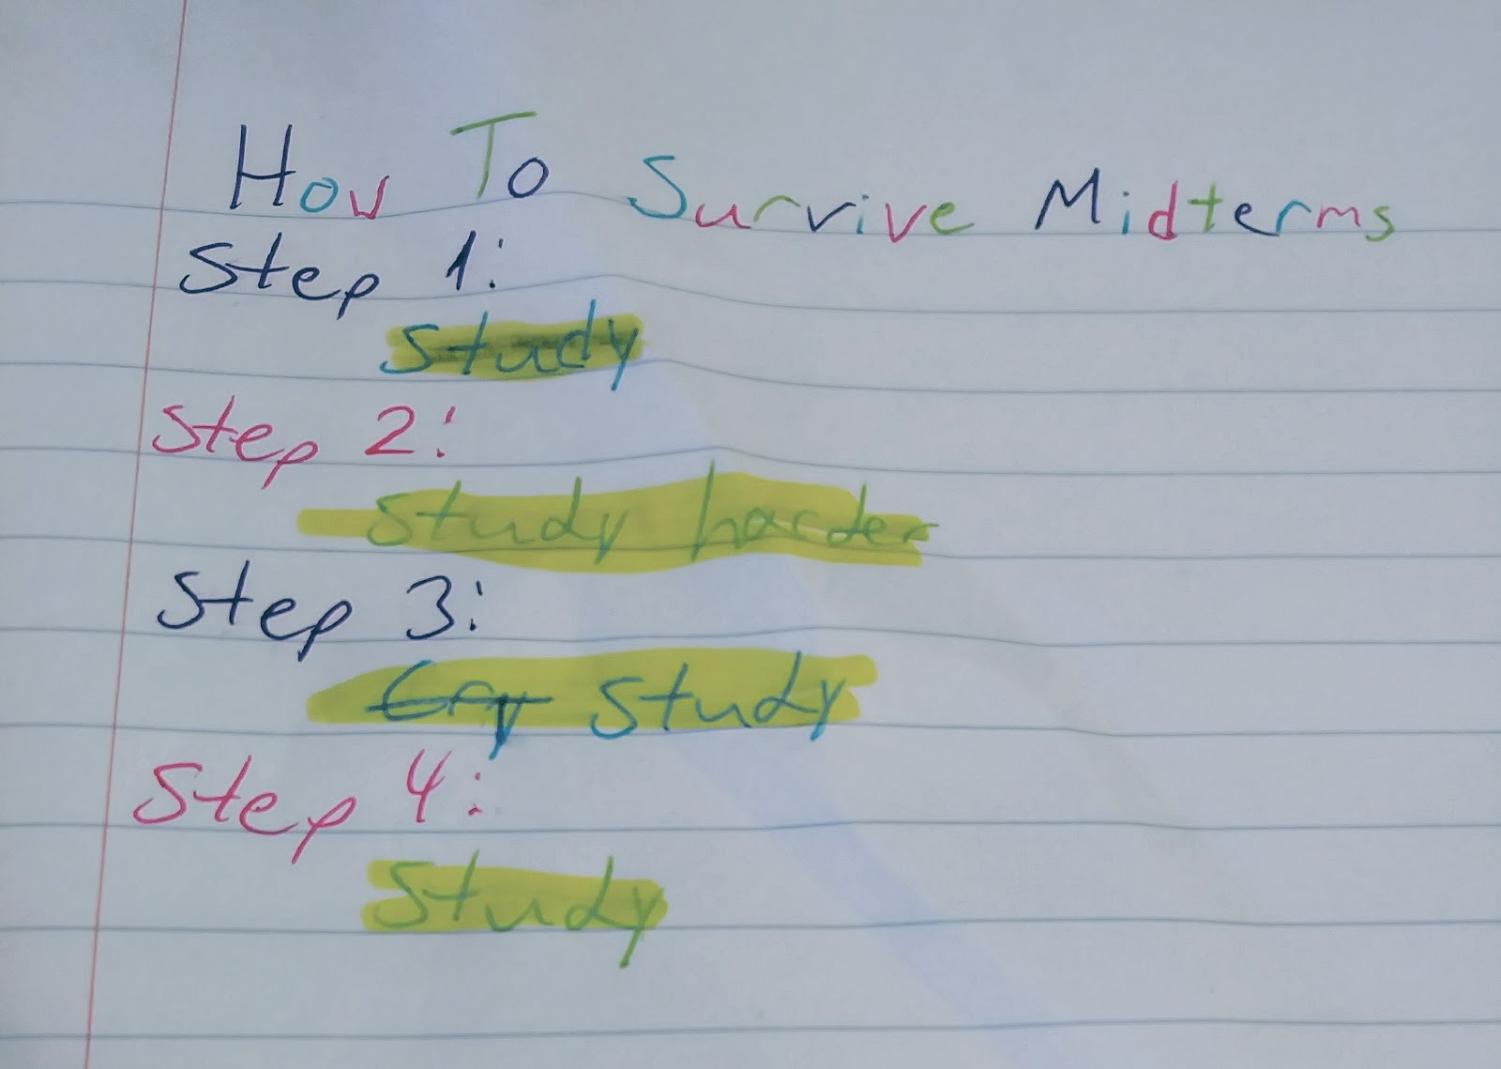 How To Survive Midterms
Step 1:
Study
Step 2:
Study harder
Step 3:
Cry Study
Step 4:
Study